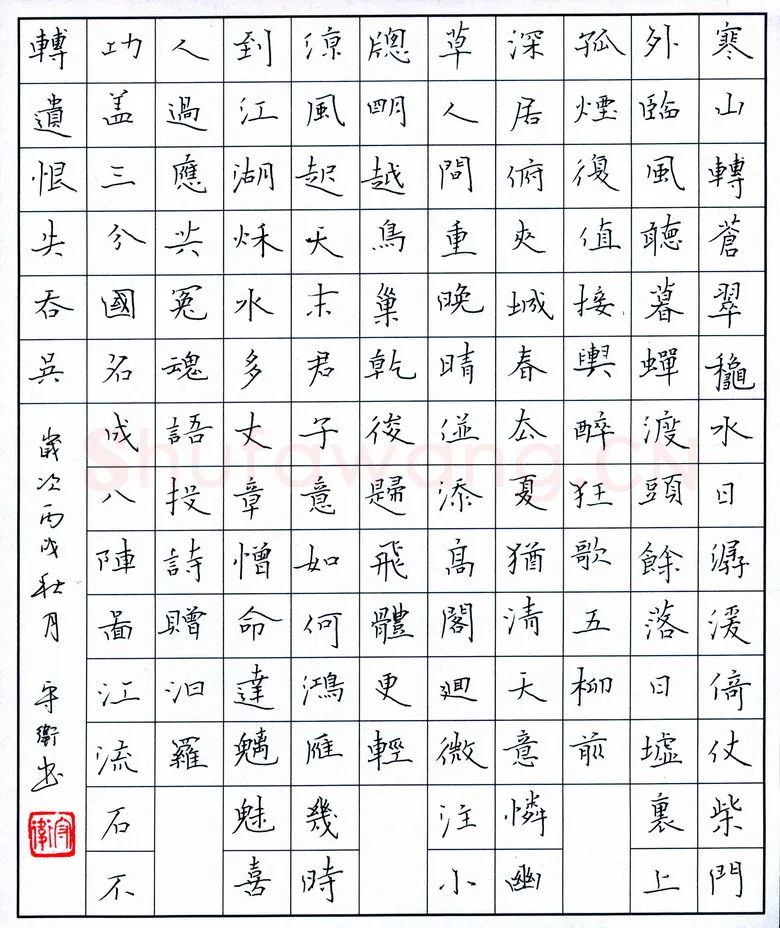 寒山轉蒼翠龝水日潺湲倚仗柴門
外臨風聽暮蟬渡頭餘落日墟裏上
孤煙復值接輿醉狂歌五柳前
深居俯夾城春去夏猶清天意憐幽
草人間重晚晴併添高閣迥微注小
牕明越鳥巢乾後歸飛體更輕
涼風起天末君子意如何鴻雁幾時
到江湖秋水多文章憎命達魑魅喜
人過應共冤魂語投詩贈汨羅
功盖三分國名成八陣圖江流石不
轉遺恨失吞吳
歲次丙戌秋月 守衛書
守衛
Shufawang.CN